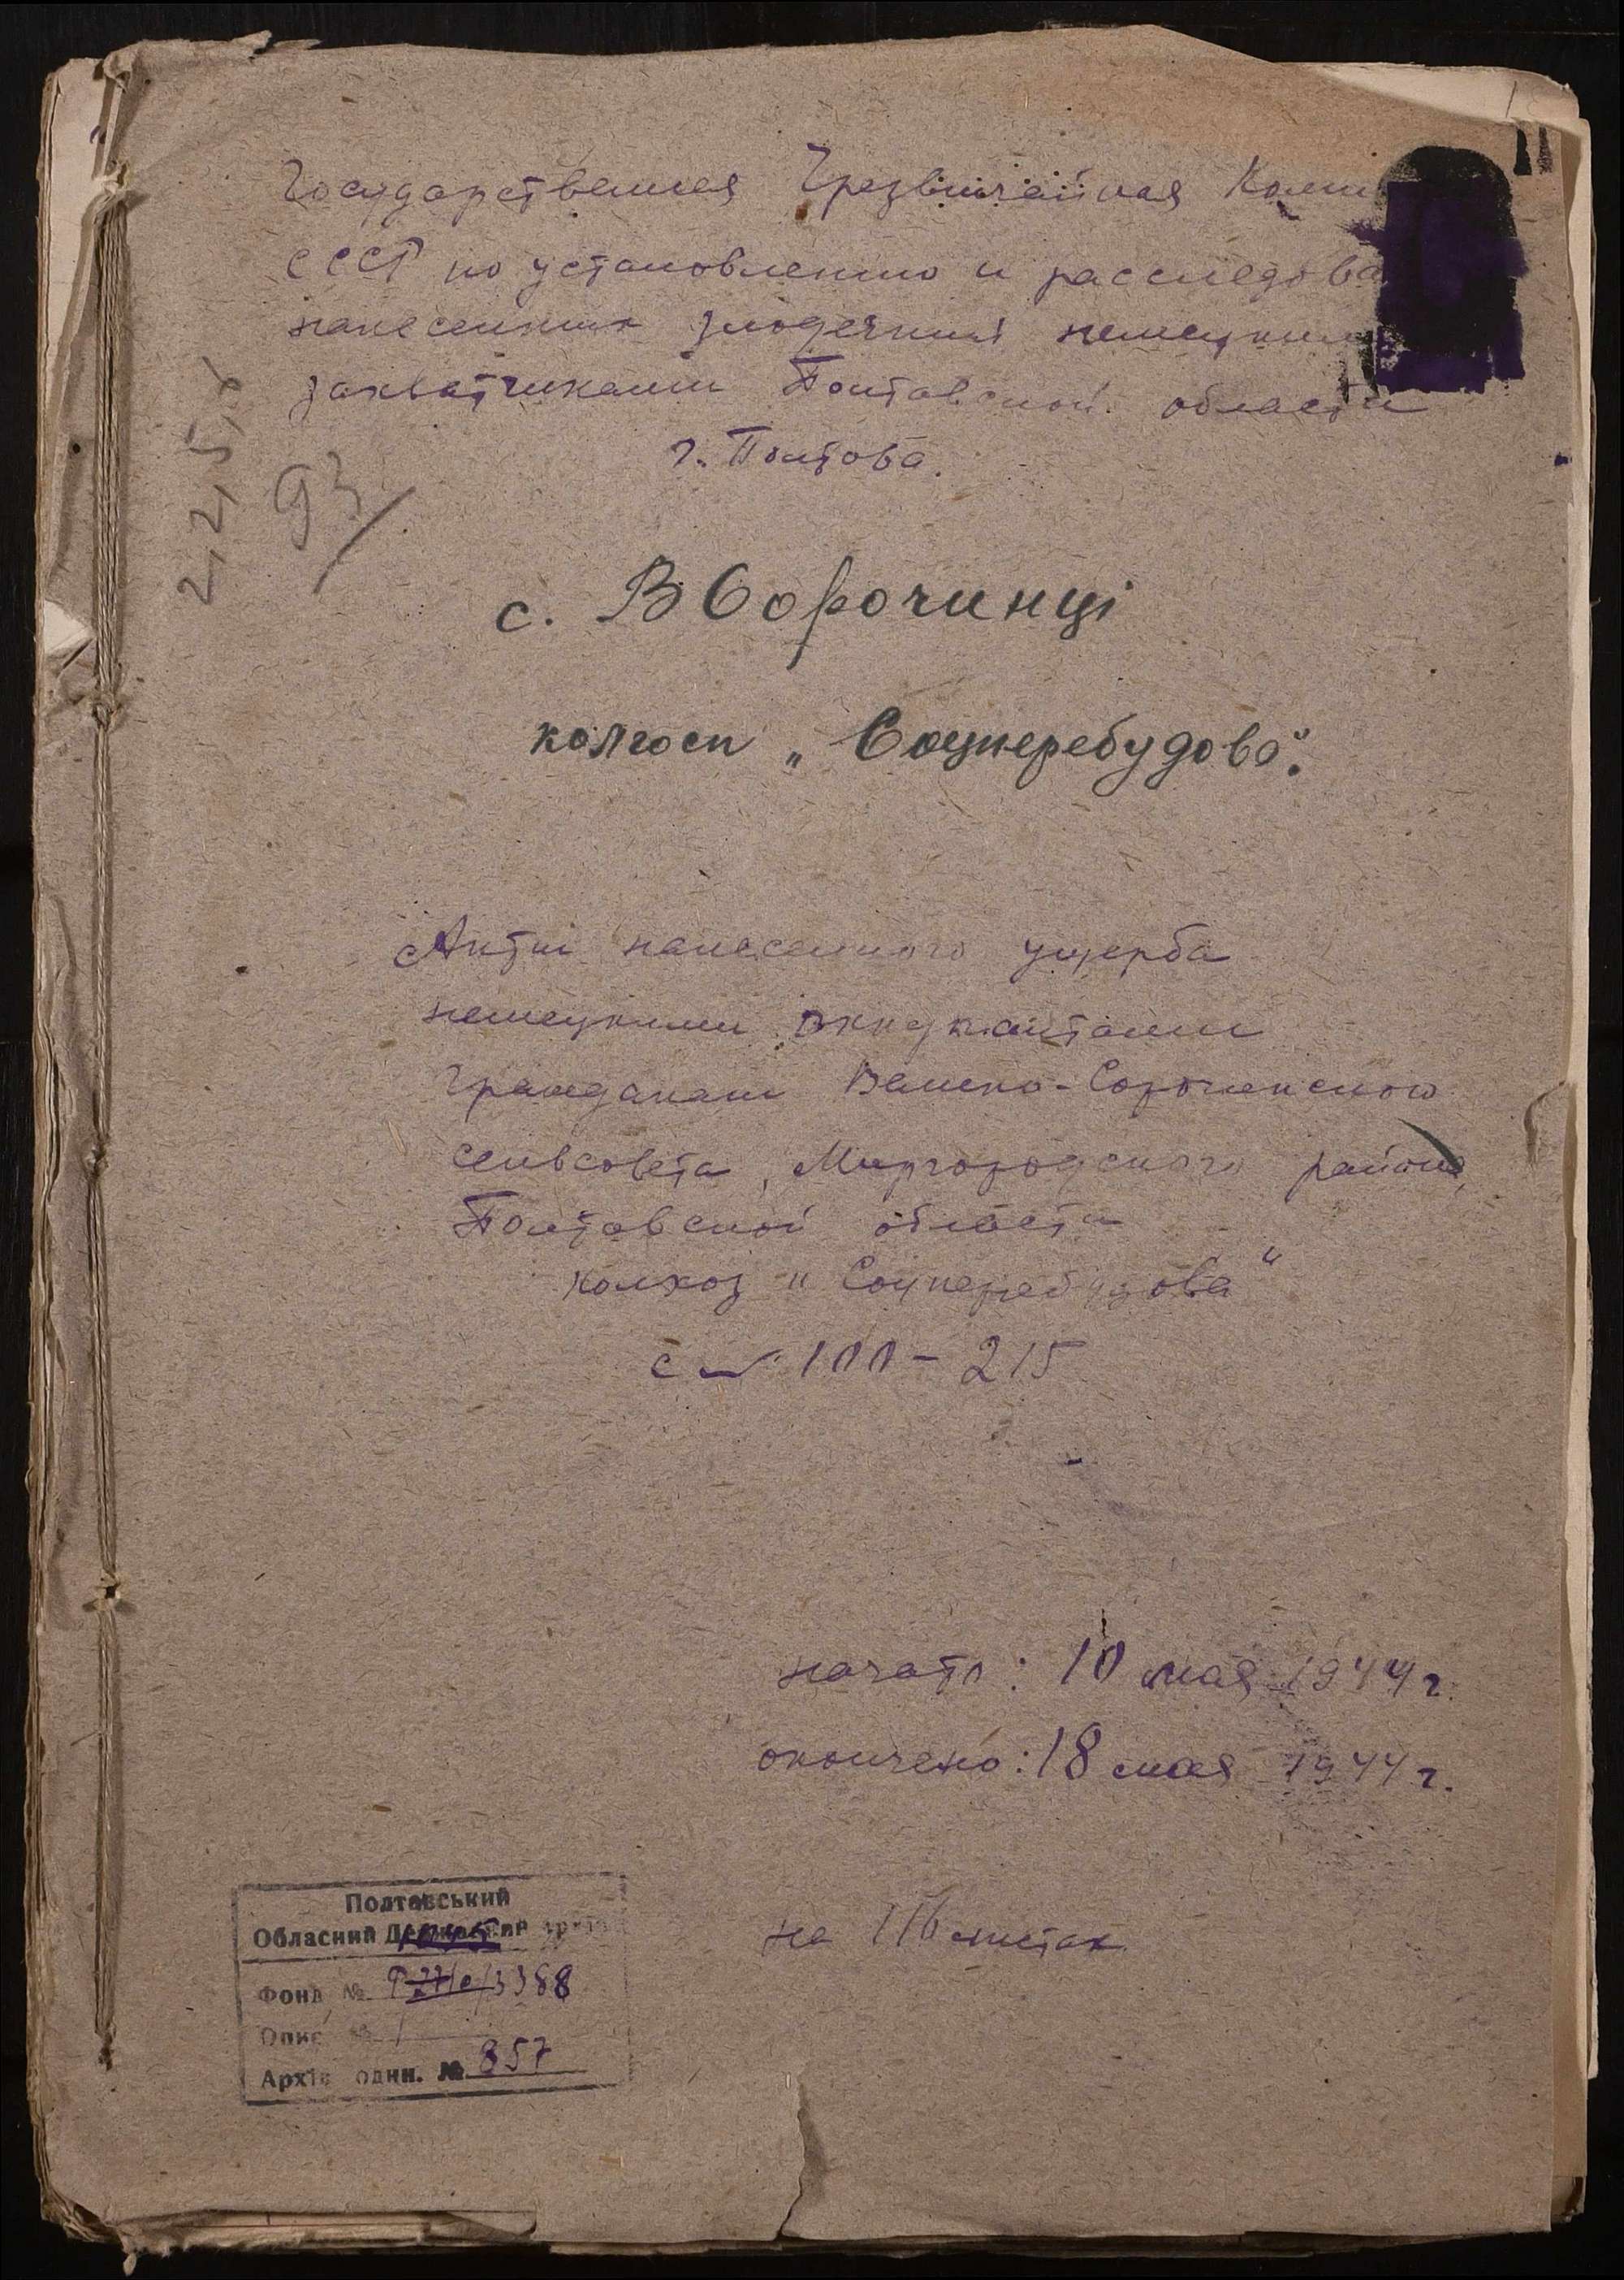 Государственная Чрезвычайная Коми
СССР по установлению и расследова
нанесенных злодеяний немецкими
захватчиками Полтавской области
г. Полтава.
2,2,5,5
93/
с. В Сорочинці
колгосп „Соцперебудова".
Акты нанесенного ущерба
немецкими оккупантами
гражданам Велико-Сорочинского
сельсовета, Миргородского района,
Полтавской области
колхоз "Соцперебудова"
с № 100 - 215
начато: 10 мая 1944 г.
окончено: 18 мая 1944 г.
на 116 листах
Полтавський
Обласний Державний архів
Фонд № Р 3388
Опис № 1
Архів один. № 857